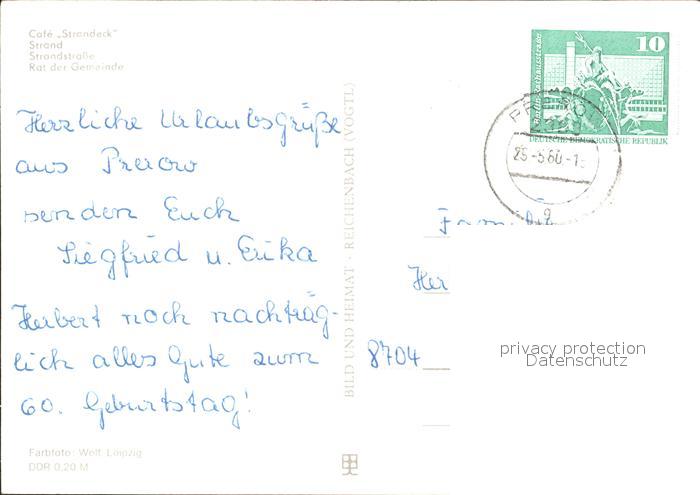 Café „Strandeck"
Strand
Strandstraße
Rat der Gemeinde
Herzliche Urlaubsgrüße
aus Prerow
senden Euch
Siegfried u. Erika
Herbert noch nachträg-
lich alles Gute zum
60. Geburtstag!
Farbfoto: Wolf, Leipzig
DDR 0,20 M
BILD UND HEIMAT · REICHENBACH (VOGTL)
10
DEUTSCHE DEMOKRATISCHE REPUBLIK
Her
8704
privacy protection
Datenschutz